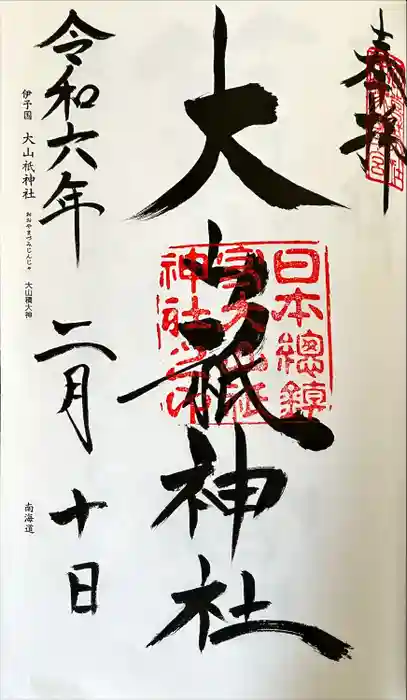 奉拝
大山祇神社
日本總鎮
守大山祇
神社之印
令和六年 二月 十日
伊予国 大山祇神社 おおやまづみじんじゃ 大山積大神
南海道